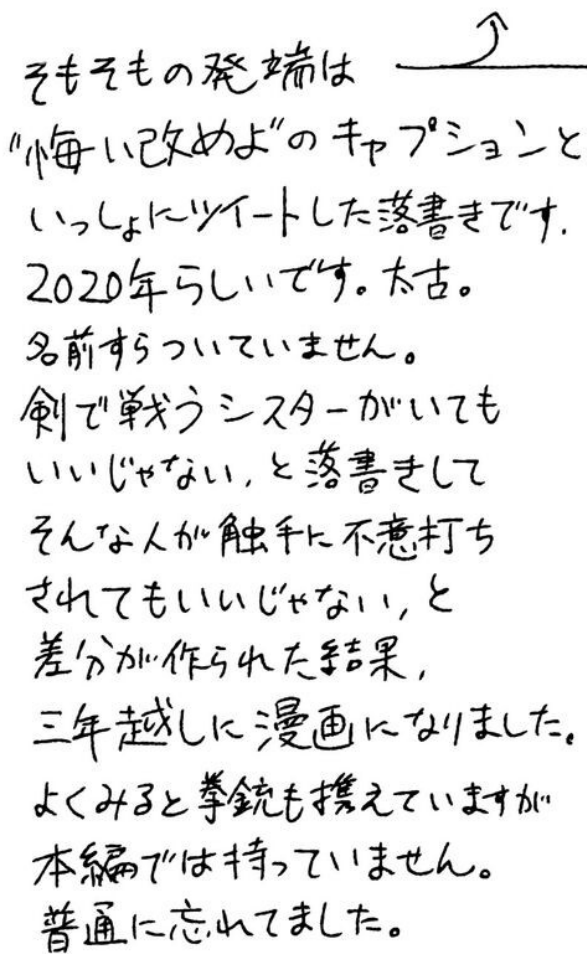 そもそもの発端は
"悔い改めよ"のキャプションと
いっしょにツイートした落書きです.
2020年らしいです。太古。
名前すらついていません。
剣で戦うシスターがいても
いいじゃない,と落書きして
そんな人が触手に不意打ち
されてもいいじゃない,と
差分が作られた結果,
三年越しに漫画になりました。
よくみると拳銃も携えていますが
本編では持っていません。
普通に忘れてました。